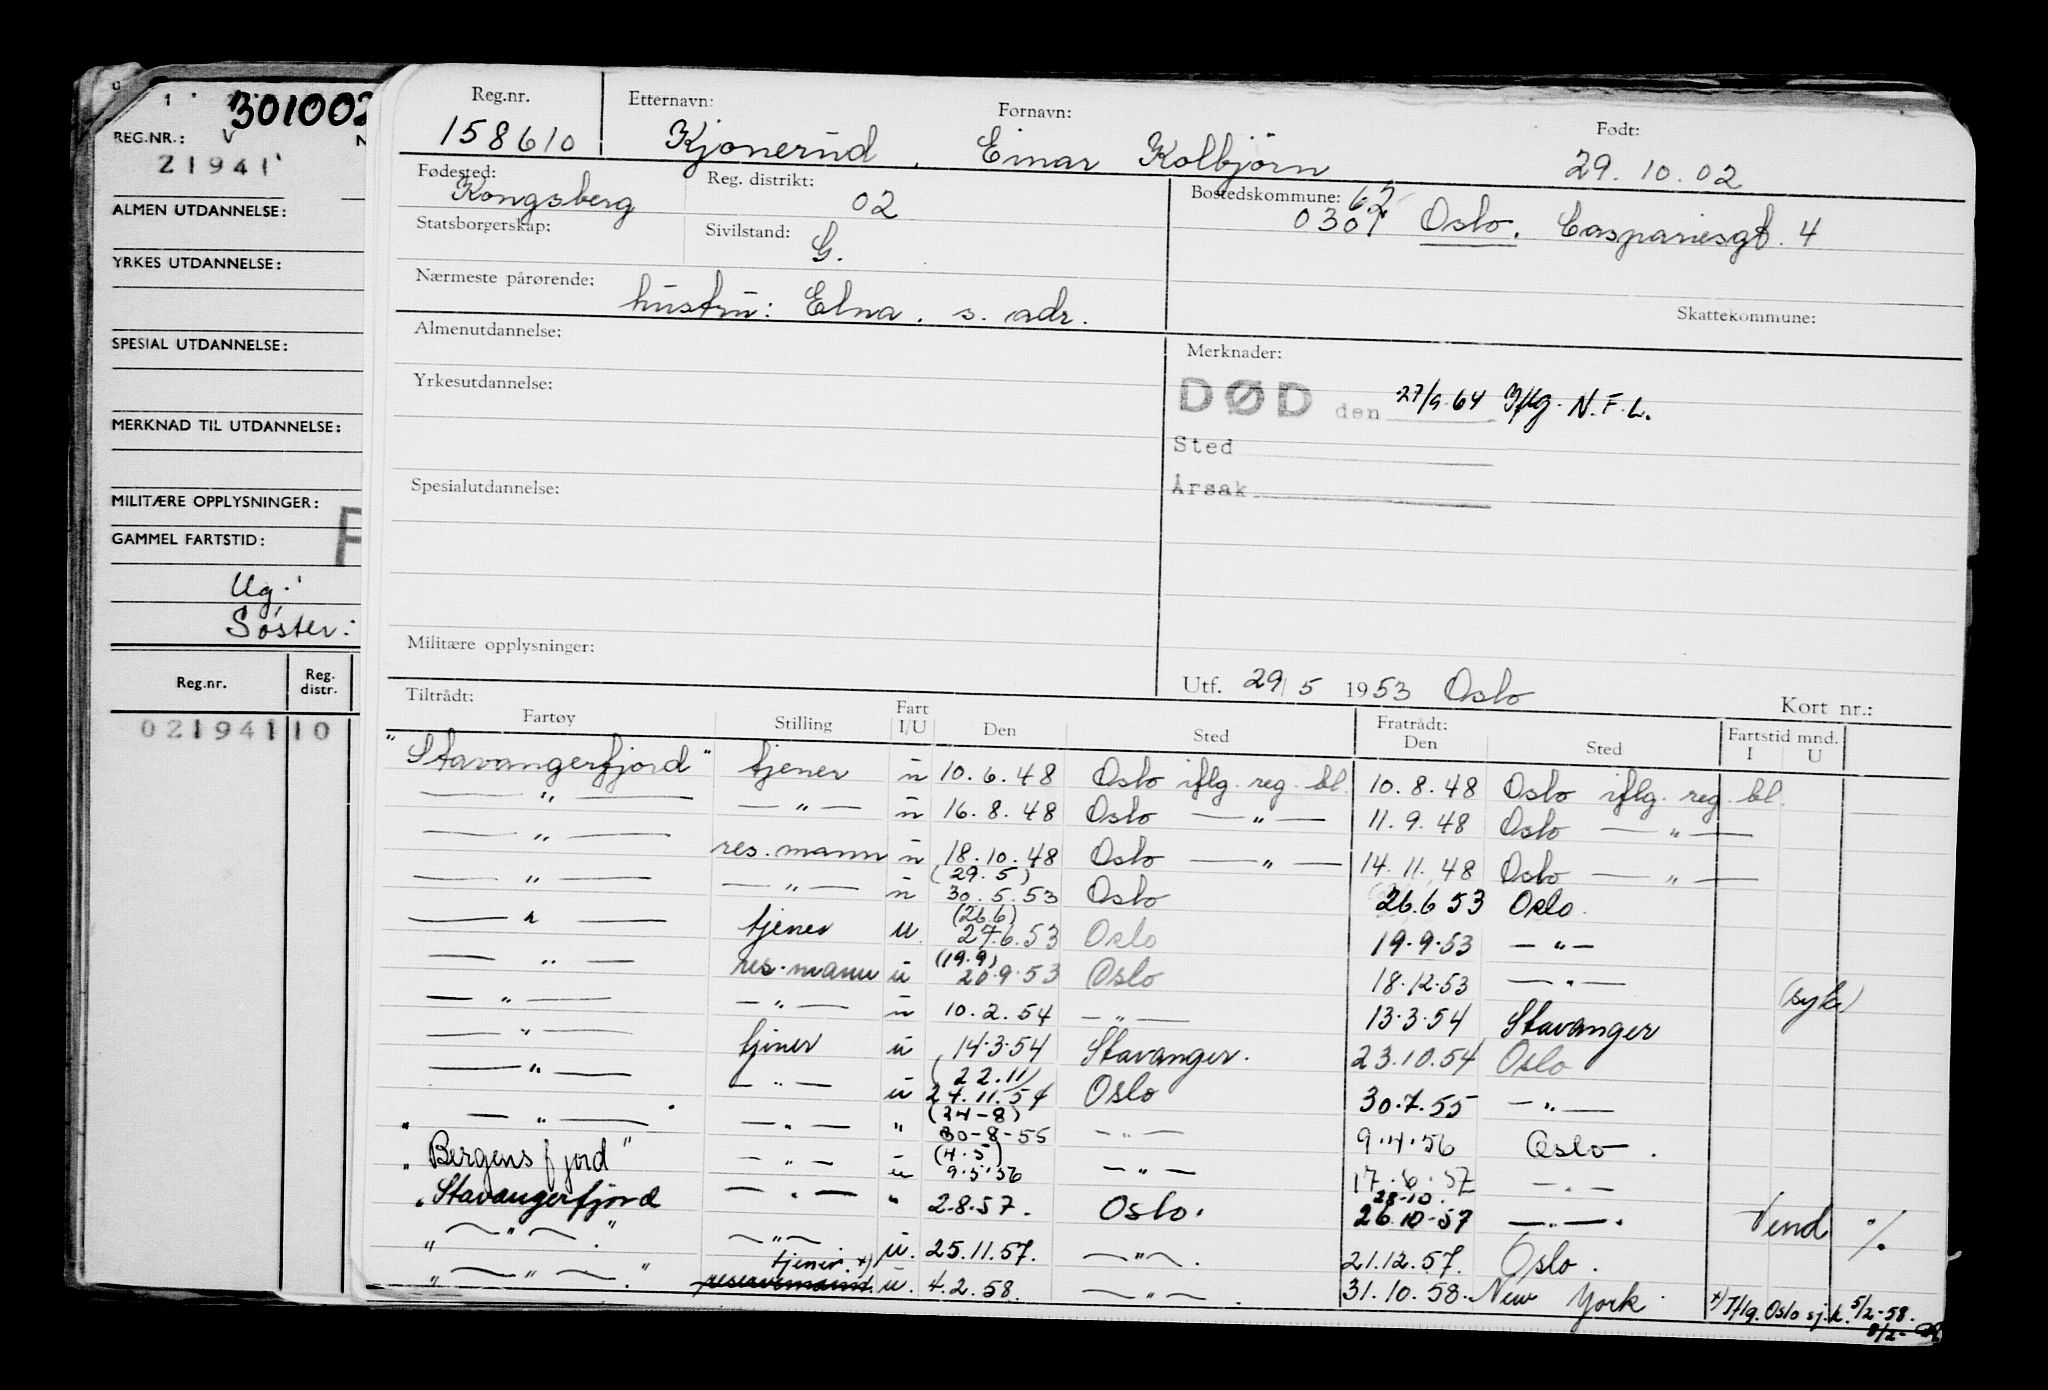 301002
REG.NR.: V N
21941
ALMEN UTDANNELSE:
YRKES UTDANNELSE:
SPESIAL UTDANNELSE:
MERKNAD TIL UTDANNELSE:
MILITÆRE OPPLYSNINGER:
GAMMEL FARTSTID:
Ug.:
Søster:
Reg.nr. Reg. distr.
02194110
Reg.nr. Etternavn: Fornavn: Født:
158610 Kjonerud, Einar Kolbjörn 29.10.02
Fødested: Reg. distrikt: Bostedskommune: 62
Kongsberg 02 0301 Oslo. Caspariesgt. 4
Statsborgerskap: Sivilstand:
G.
Nærmeste pårørende: Skattekommune:
hustru: Elna. s. adr.
Almenutdannelse: Merknader:
DØD den 27/9.64 Iflg. N.F.L.
Yrkesutdannelse:
Sted
Årsak
Spesialutdannelse:
Militære opplysninger:
Utf. 29/5 1953 Oslo
Tiltrådt: Fart Fratrådt: Kort nr.:
Fartøy Stilling I/U Den Sted Den Sted Fartstid mnd. I U
"Stavangerfjord" tjener u 10.6.48 Oslo iflg. reg. bl. 10.8.48 Oslo iflg. reg. bl.
— " — — " — u 16.8.48 Oslo — " — 11.9.48 Oslo — " —
— " — res. mann u 18.10.48 Oslo — " — 14.11.48 Oslo — " —
(29.5)
— " — — " — u 30.5.53 Oslo 26.6 53 Oslo.
(26.6)
— " — tjener u. 27.6.53 Oslo 19.9.53 — " —
(19.9)
— " — res. mann u 20.9.53 Oslo 18.12.53 — " —
— " — — " — u 10.2.54 — " — 13.3.54 Stavanger (syk)
— " — tjener u 14.3.54 Stavanger. 23.10.54 Oslo
(22.11)
— " — — " — u 24.11.54 Oslo 30.7.55 — " —
(24-8)
— " — — " — " 30-8-55 — " — 9.4.56 Oslo.
(4.5)
"Bergensfjord" — " — u 9.5.56 — " — 17.6.57 — " —
28-10.
"Stavangerfjord — " — " 2.8.57. Oslo. 26.10-57 — " —. Vend %
" — " — " — " — u. 25.11.57. — " —. 21.12.57. Oslo.
tjener. x)
" — " — " reservemann. u. 4.2.58. — " —. 31.10.58. New York x) Iflg. Oslo sj.k. 5/2-58.
8/2-